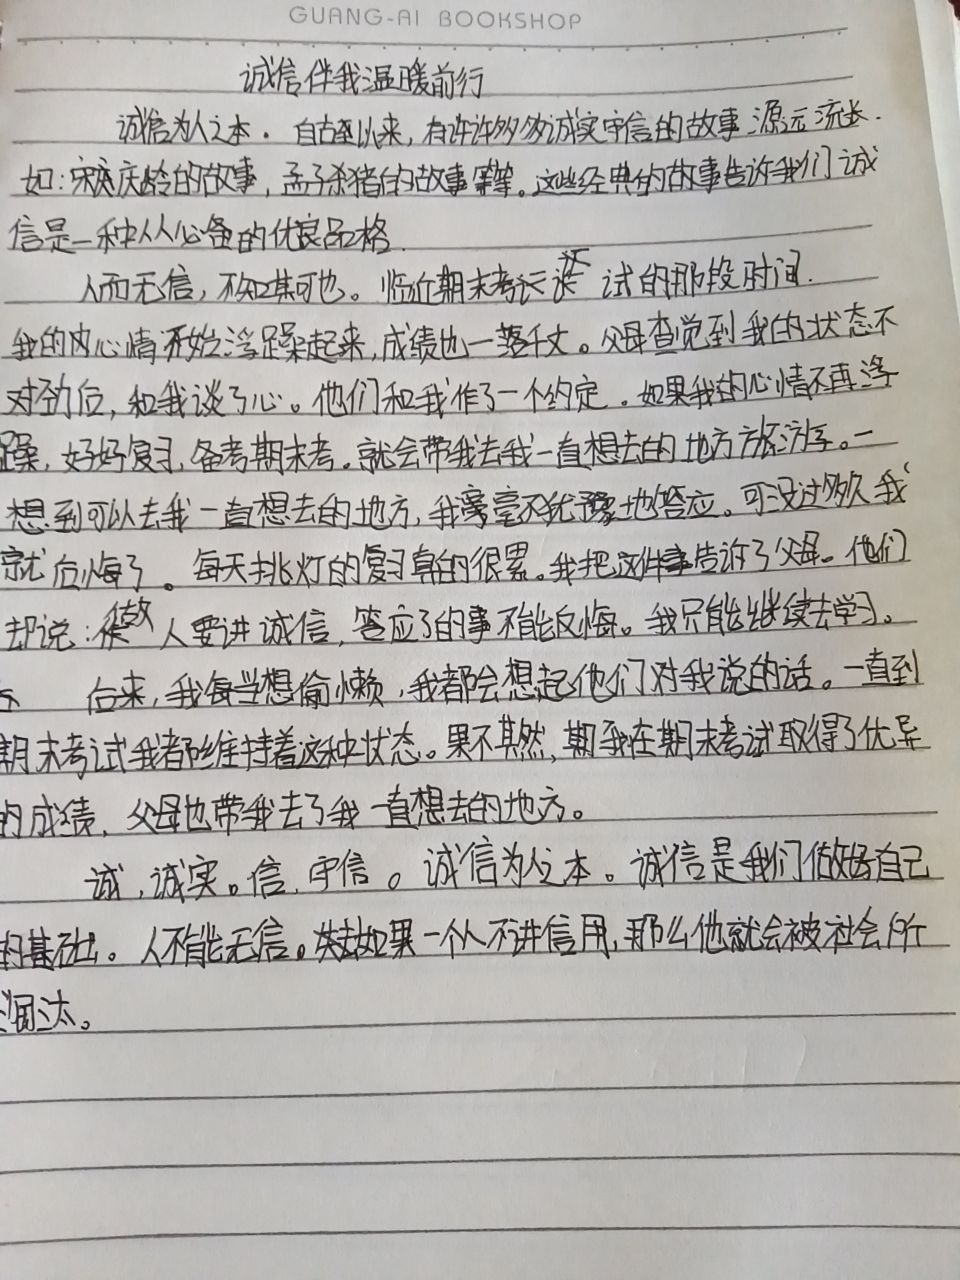 GUANG-AI BOOKSHOP
诚信伴我温暖前行
诚信为人之本. 自古至以来,有许许多多诚实守信的故事源远流长.
如:宋庆龄的故事,孟子杀猪的故事等等。这些经典的故事告诉我们诚
信是一种人人必备的优良品格.
人而无信,不知其可也。临近期末考试的那段时间.
我的内心情开始浮躁起来,成绩也一落千丈。父母查觉到我的状态不
对劲后,和我谈了心。他们和我作了一个约定.如果我的心情不再浮
躁,好好复习,备考期末考.就会带我去我一直想去的地方旅游。一
想到可以去我一直想去的地方,我毫不犹豫地答应。可没过多久我
就后悔了。每天挑灯的复习真的很累。我把这件事告诉了父母。他们
却说:做人要讲诚信,答应了的事不能反悔。我只能继续去学习。
后来,我每当想偷懒,我都会想起他们对我说的话。一直到
期末考试我都维持着这种状态。果不其然,我在期末考试取得了优异
的成绩,父母也带我去了我一直想去的地方。
诚,诚实。信,守信。诚信为人之本。诚信是我们做好自己
的基础。人不能无信。如果一个人不讲信用,那么他就会被社会所
汰。